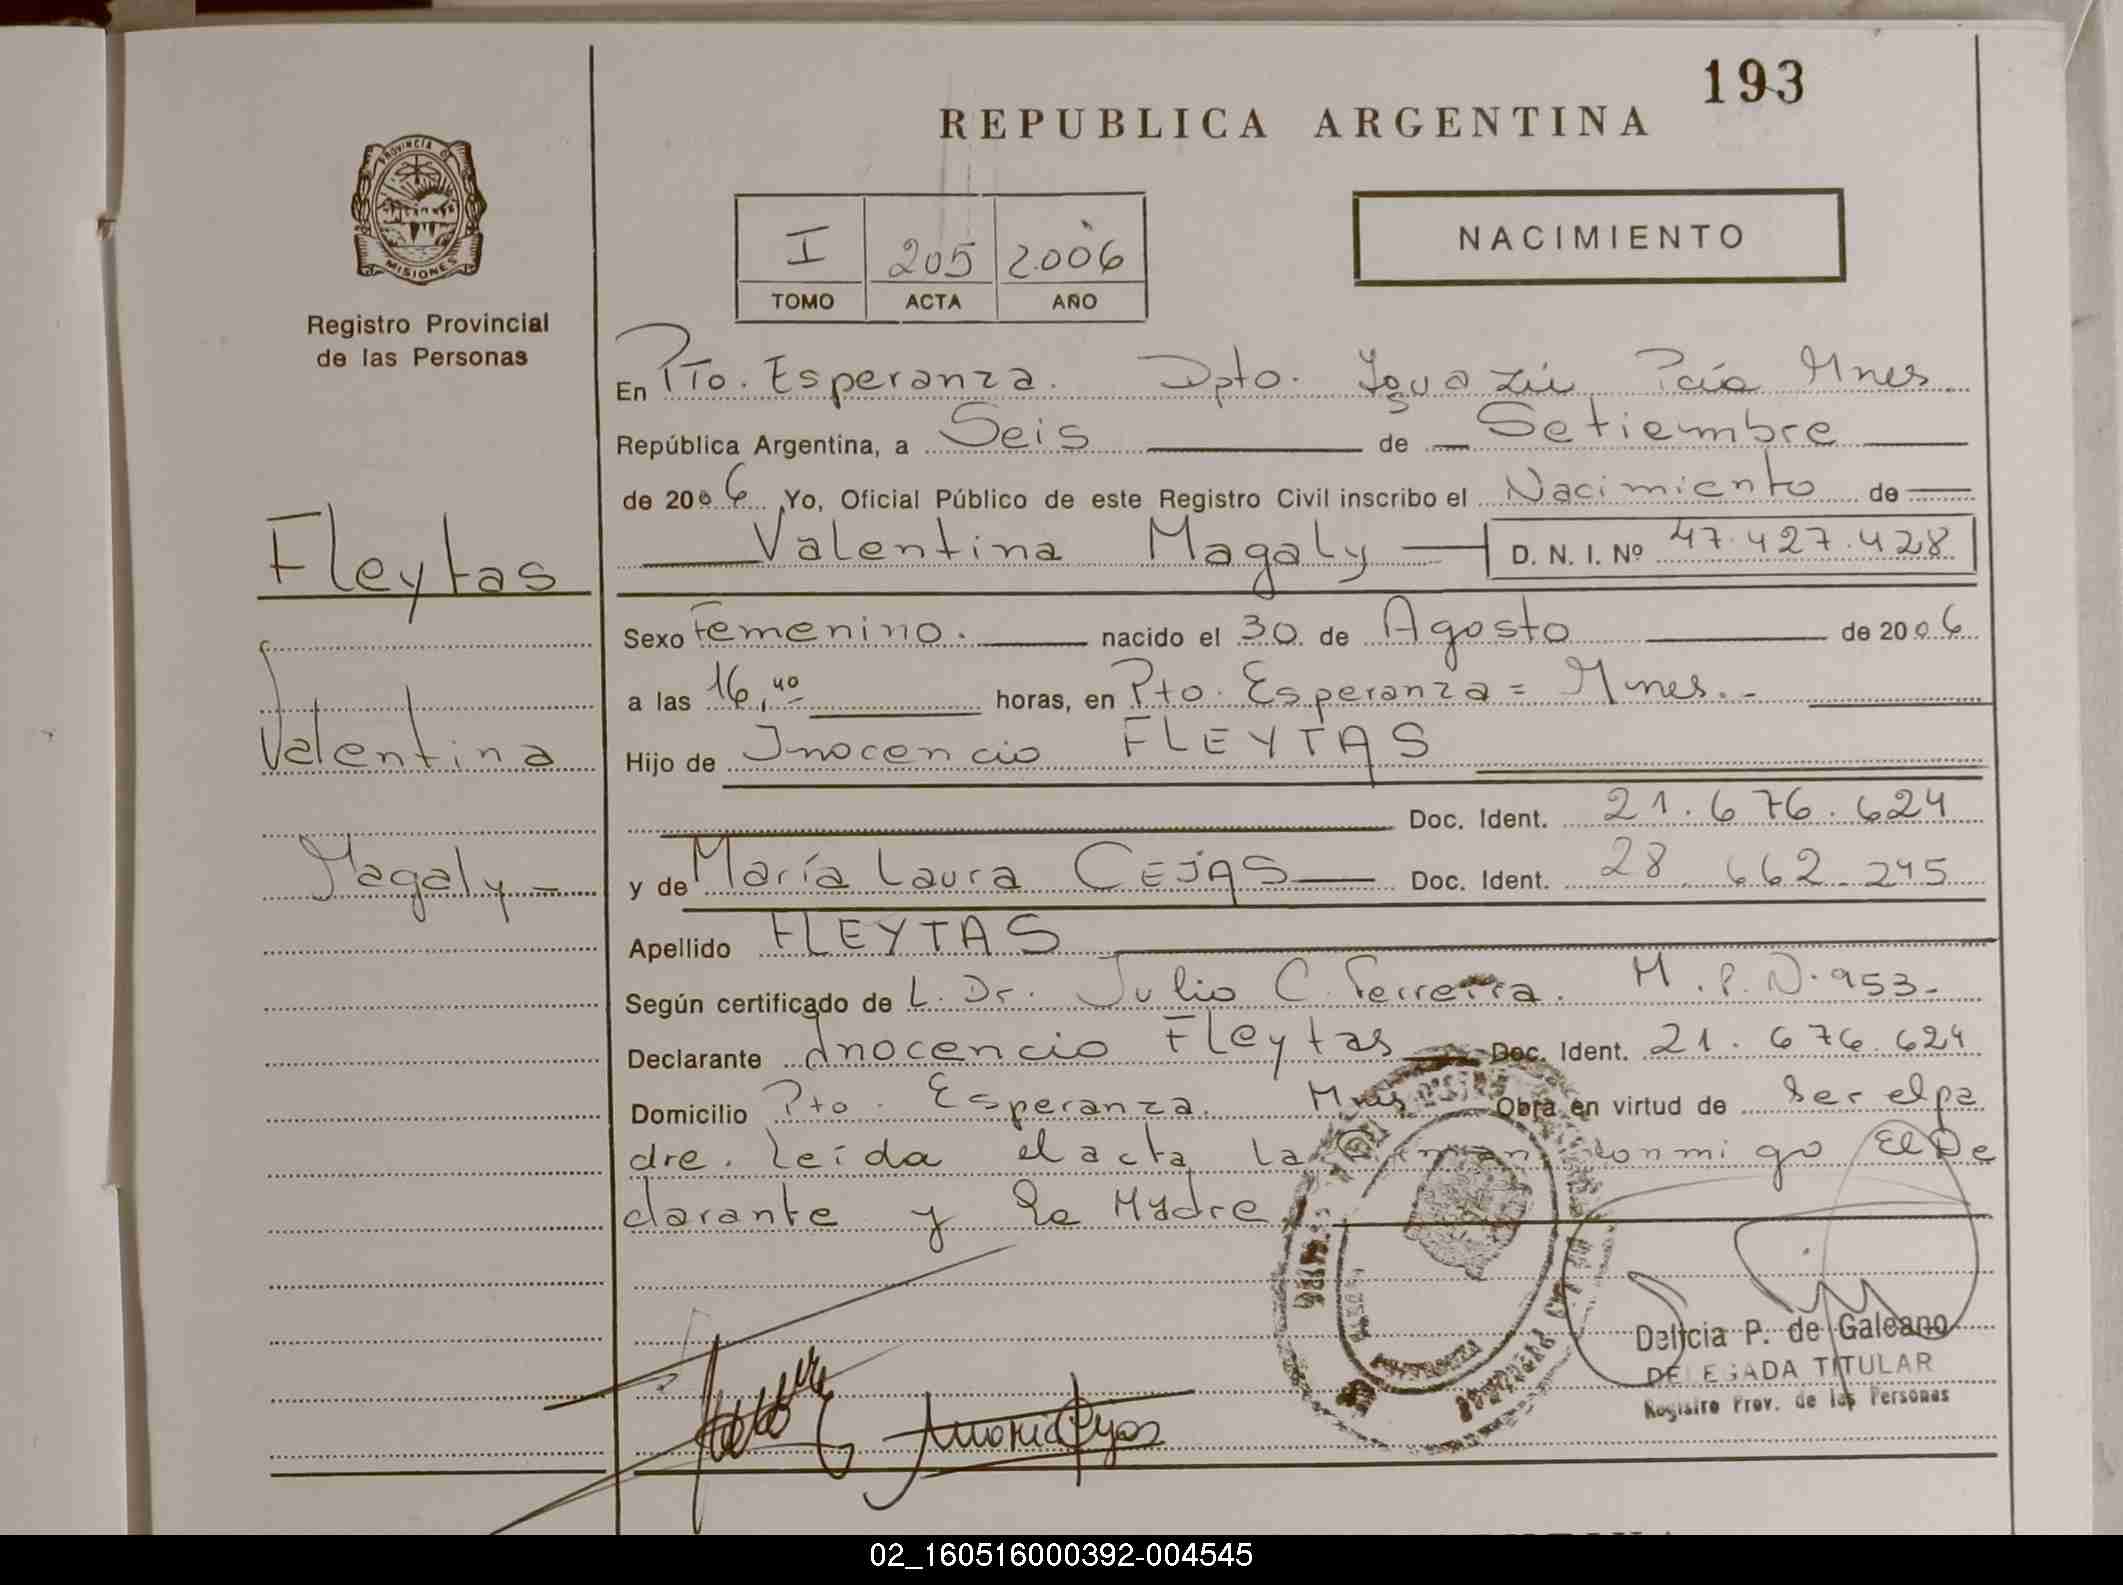 193
REPUBLICA ARGENTINA
PROVINCIA DE
MISIONES
Registro Provincial
de las Personas
I 205 2006
TOMO ACTA AÑO
NACIMIENTO
En Pto. Esperanza. Dpto. Iguazú Pcia Mnes
República Argentina, a Seis de Setiembre
de 2006 Yo, Oficial Público de este Registro Civil inscribo el Nacimiento de
Valentina Magaly D. N. I. Nº 47.427.428
Fleytas
Valentina
Magaly
Sexo Femenino. nacido el 30 de Agosto de 2006
a las 16,40 horas, en Pto. Esperanza = Mnes.-
Hijo de Inocencio FLEYTAS
Doc. Ident. 21.676.624
y de María Laura CEJAS Doc. Ident. 28.662.245
Apellido FLEYTAS
Según certificado de L. Dr. Julio C. Ferreira. M.P.N.953-
Declarante Inocencio Fleytas Doc. Ident. 21.676.624
Domicilio Pto. Esperanza. Mnes Obra en virtud de ser el pa
dre. Leída el acta la firman conmigo El De
clarante y la Madre
Delicia P. de Galeano
DELEGADA TITULAR
Registro Prov. de las Personas
02_160516000392-004545